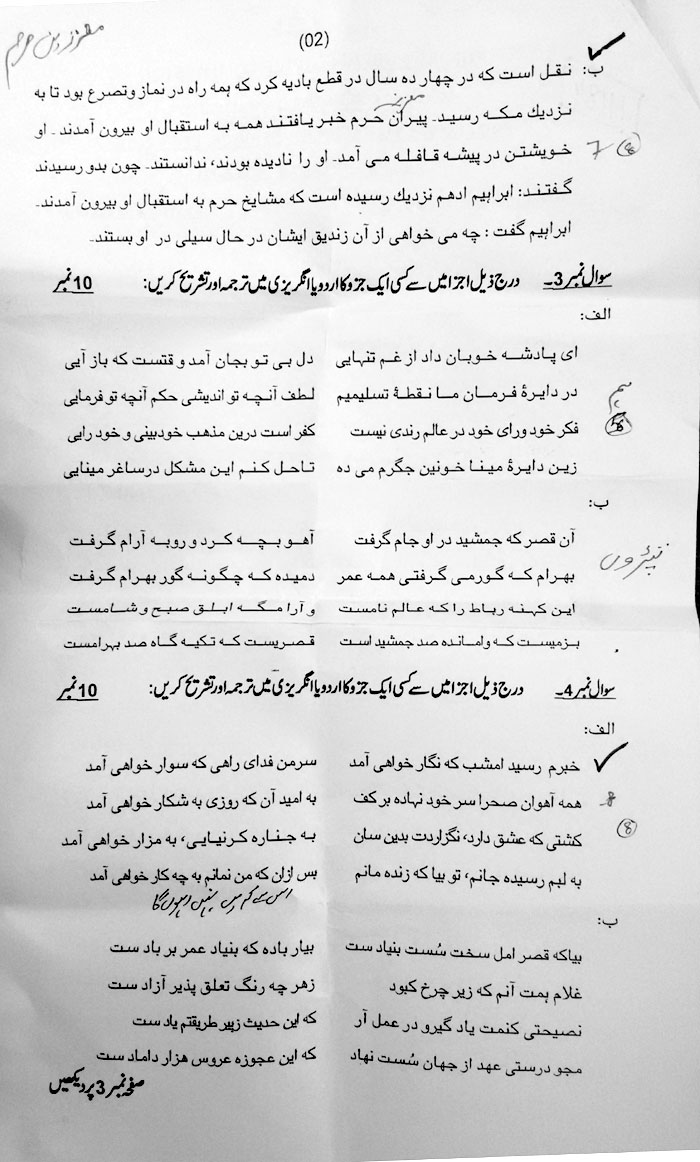 (02)
ب: نقل است که در چهار ده سال در قطع بادیه کرد که همه راه در نماز وتصرع بود تا به
نزدیك مکه رسید۔ پیران حرم خبر یافتند همه به استقبال او بیرون آمدند۔ او
خویشتن در پیشه قافله می آمد۔ او را نادیده بودند، ندانستند۔ چون بدو رسیدند
گفتند: ابراهیم ادهم نزدیك رسیده است که مشایخ حرم به استقبال او بیرون آمدند۔
ابراهیم گفت: چه می خواهی از آن زندیق ایشان در حال سیلی در او بستند۔
7 (8)
سوال نمبر 3۔ درج ذیل اجزا میں سے کسی ایک جزو کا اردو یا انگریزی میں ترجمہ اور تشریح کریں: 10 نمبر
الف:
ای پادشه خوبان داد از غم تنهایی دل بی تو بجان آمد و قتست که باز آیی
در دایرۂ فرمان ما نقطۂ تسلیمیم لطف آنچه تو اندیشی حکم آنچه تو فرمایی
فکر خود ورای خود در عالم رندی نیست کفر است درین مذهب خودبینی و خود رایی
زین دایرۂ مینا خونین جگرم می ده تاحل کنم این مشکل درساغر مینایی
ب:
آن قصر که جمشید در او جام گرفت آهو بچه کرد و روبه آرام گرفت
بهرام که گورمی گرفتی همه عمر دمیده که چگونه گور بهرام گرفت
این کهنه رباط را که عالم نامست و آرا مگه ابلق صبح و شامست
بزمیست که وامانده صد جمشید است قصریست که تکیه گاه صد بهرامست
سوال نمبر 4۔ درج ذیل اجزا میں سے کسی ایک جزو کا اردو یا انگریزی میں ترجمہ اور تشریح کریں: 10 نمبر
الف:
خبرم رسید امشب که نگار خواهی آمد سرمن فدای راهی که سوار خواهی آمد
همه آهوان صحرا سر خود نهاده بر کف به امید آن که روزی به شکار خواهی آمد
8 (8)
کشتی که عشق دارد، نگزاردت بدین سان به جنازه کرنیایی، به مزار خواهی آمد
به لبم رسیده جانم، تو بیا که زنده مانم بس ازان که من نمانم به چه کار خواهی آمد
ب:
بیاکه قصر امل سخت سُست بنیاد ست بیار باده که بنیاد عمر بر باد ست
غلام ہمت آنم که زیر چرخ کبود زهر چه رنگ تعلق پذیر آزاد ست
نصیحتی کنمت یاد گیرو در عمل آر که این حدیث زپیر طریقتم یاد ست
مجو درستی عهد از جهان سُست نهاد که این عجوزه عروس هزار داماد ست
صفحہ نمبر 3 پر دیکھیں